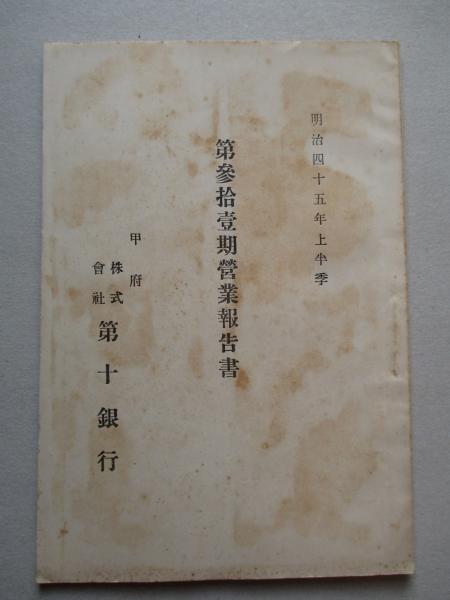 明治四十五年上半季
第參拾壹期營業報告書
甲府
株式會社第十銀行